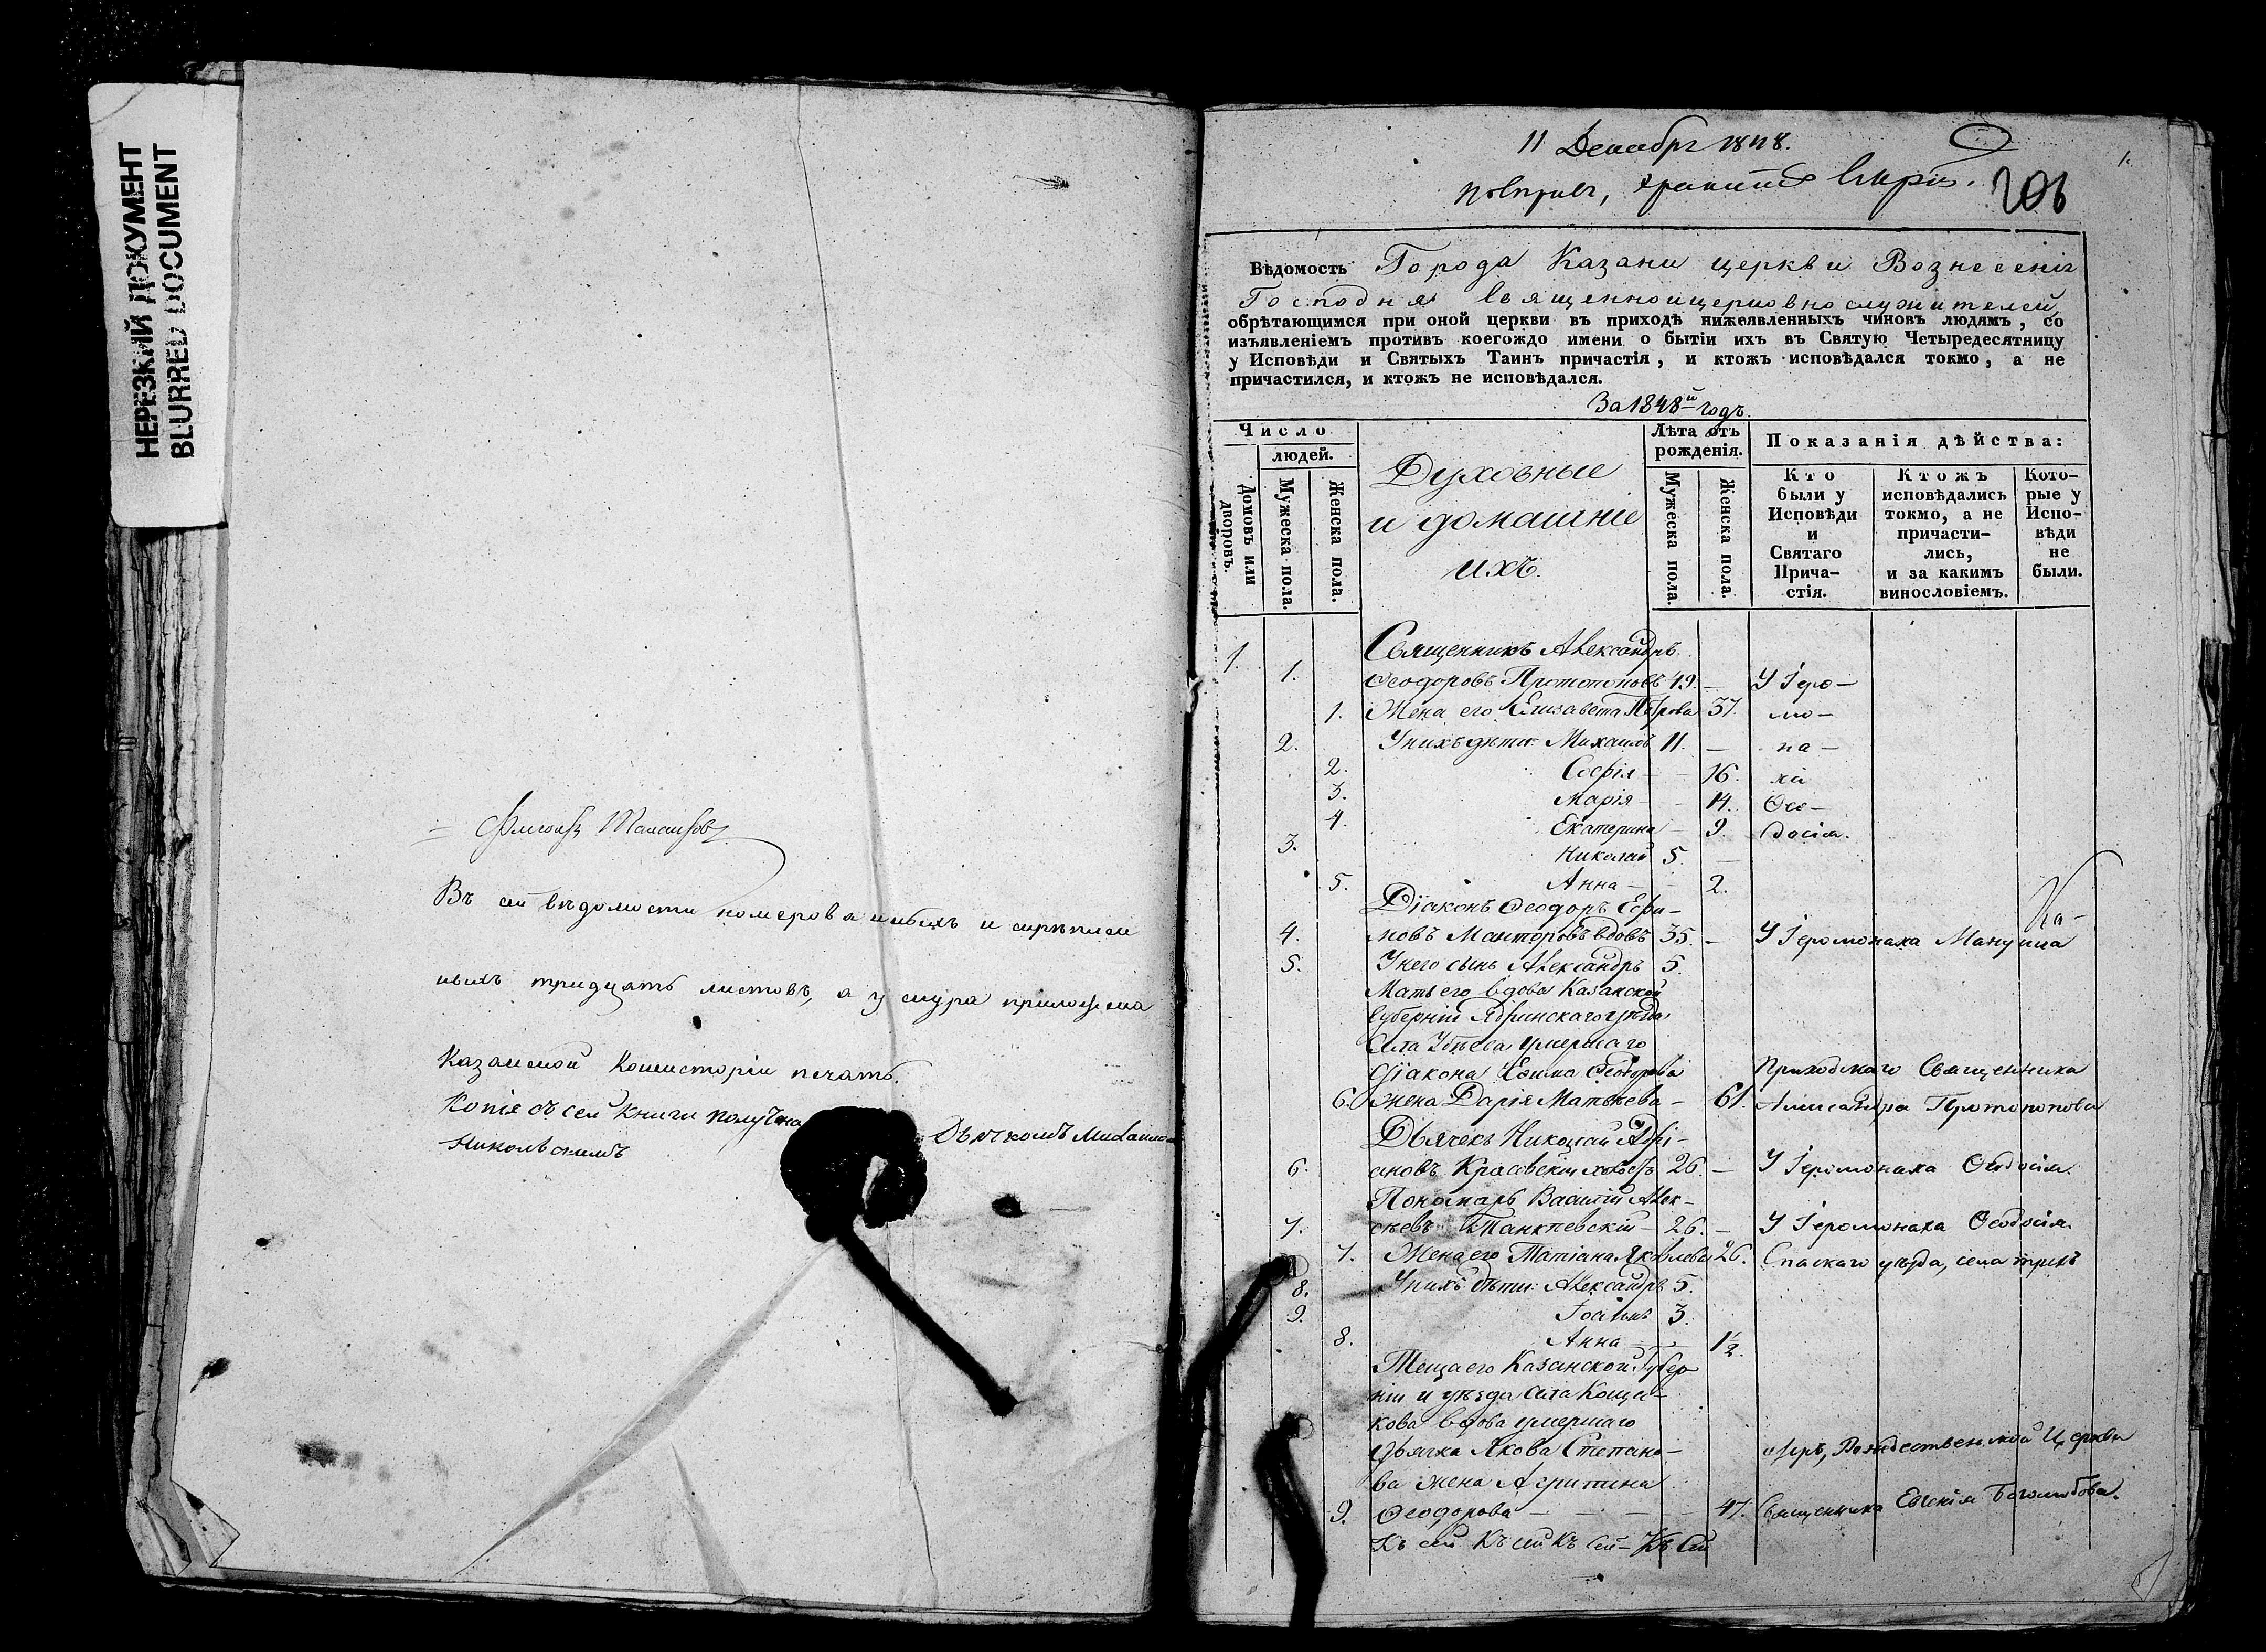 НЕРЕЗКИЙ ДОКУМЕНТ
BLURRED DOCUMENT
Въ сей вѣдомости номерованныхъ и скрѣплен
ныхъ тридцать листовъ, а у шнура приложена
Казанской Консисторіи печать.
Копія съ сей книги получена Дьячкомъ
Никольскимъ
11 Декабря 1848.
206
Вѣдомость Города Казани церкви Вознесенія
Господня священноицерковнослужителей,
обрѣтающимся при оной церкви въ приходѣ нижеявленныхъ чиновъ людямъ, со
изъявленіемъ противъ коегождо имени о бытіи ихъ въ Святую Четыредесятницу
у Исповѣди и Святыхъ Таинъ причастія, и ктожъ исповѣдался токмо, а не
причастился, и ктожъ не исповѣдался.
За 1848й годъ.
Число
людей.
Домовъ или дворовъ.
Мужеска пола.
Женска пола.
Духовные
и домашніе
ихъ.
Лѣта отъ рожденія.
Мужеска пола.
Женска пола.
Показанія дѣйства:
Кто были у Исповѣди и Святаго Прича- стія.
Ктожъ исповѣдались токмо, а не причасти- лись, и за какимъ винословіемъ.
Кото- рые у Испо- вѣди не были.
1. Священникъ Александръ
1. Ѳеодоровъ Протопоповъ 49. — У Іеро-
1. Жена его Елисавета Петрова 37. мо-
2. У нихъ дѣти: Михаилъ 11. — на-
2. Софія — 16. ха
3. Марія — 14. Ѳео-
4. Екатерина — 9. досія.
3. Николай 5. —
5. Анна — 2.
Діаконъ Ѳеодоръ Ефи-
4. мовъ Манторовъ вдовъ 35. — У Іеромонаха
5. У него сынъ Александръ 5.
Мать его вдова Казанской
Губерніи Ядринскаго уѣзда
Села умершаго
діакона Ефима Ѳеодорова Приходскаго Священника
6. жена Дарія Матвѣева — 61. Александра Протопопова
Дьячекъ Николай Адрі-
6. ановъ Красовскій холостъ 26. — У Іеромонаха Ѳеодосія.
Пономарь Василій Алек-
7. сѣевъ Танкѣевскій — 26. — У Іеромонаха Ѳеодосія.
7. Жена его Татіана Яковлева 26. Спаскаго уѣзда, села трехъ
8. У нихъ дѣти: Александръ 5.
9. 3.
8. Анна — 1½.
Теща его Казанской Губер
ніи и уѣзда села Коща-
кова вдова умершаго
дьячка Якова Степано- озеръ, Рождественской Церкви
ва жена Агрипина
9. Ѳеодорова — — — — 47. Священника Евгенія Боголюбова.
Къ сей Къ сей Къ сей — Къ сей